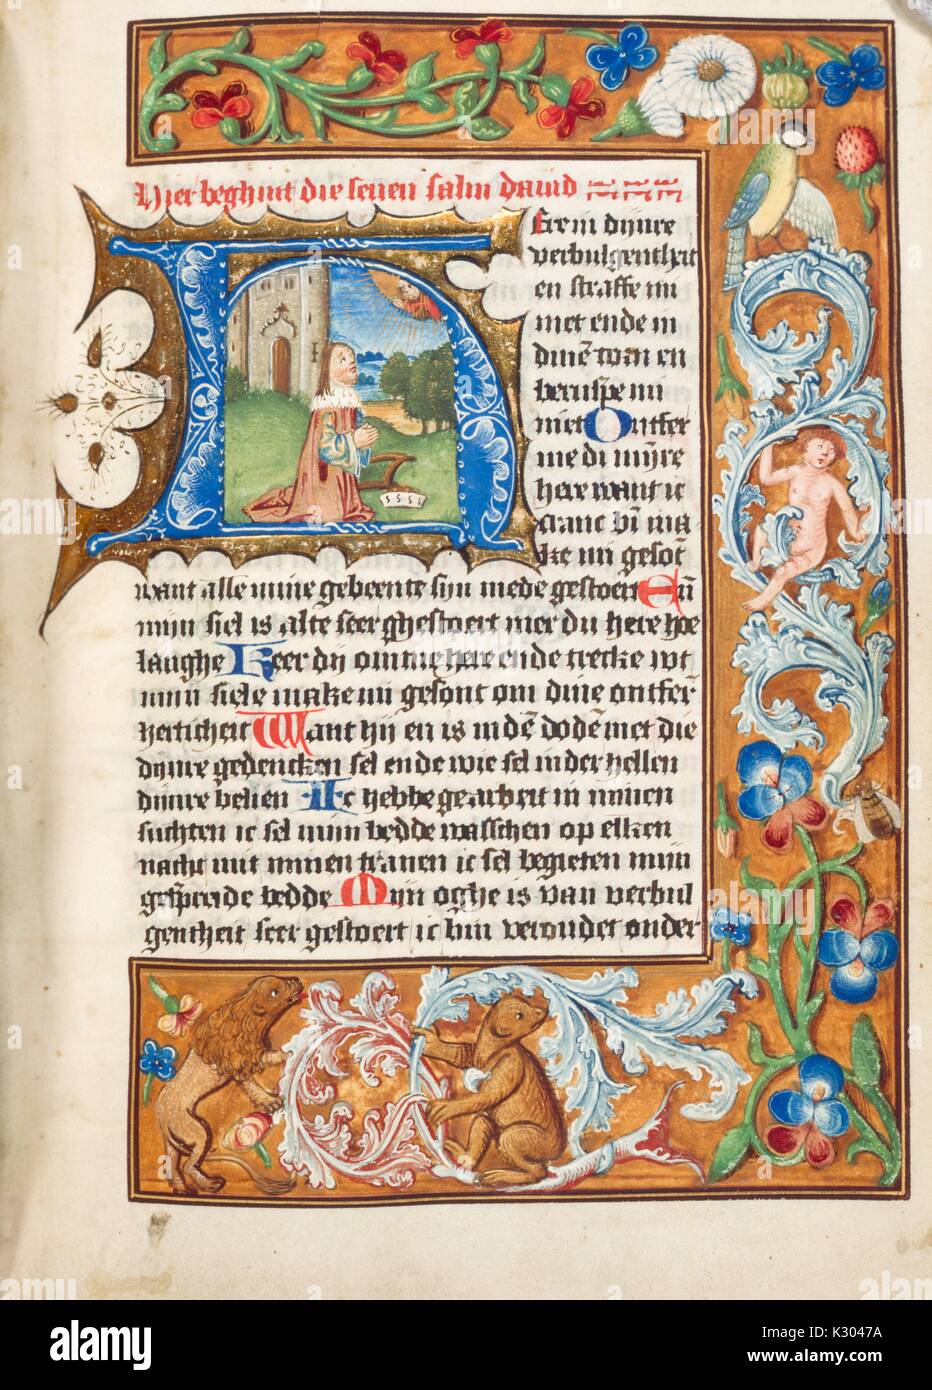 Hier beghint die seuen salm dauid
Here in dijnre
verbolgentheit
en straffe mi
niet ende in
dinē torn en
berispe mi
niet Ontfer
me di mijre
here want ic
cranc bī ma
ke mi gesōt
want alle mine gebeente sijn mede gestoert Eñ
mijn siel is alte seer ghestoert mer du here hoe
langhe Keer dij omme here ende trecke wt
mijn siele make mi gesont om dine ontfer
herticheit Want hij en is in dē dodē niet die
dijnre gedencken sel ende wie sel in der hellen
dijnre belien Ic hebbe gearbeit in minen
suchten ic sel mijn bedde wasschen op elken
nacht mit minen tranen ic sel begieten mijn
gespreide bedde Mijn oghe is van verbul
gentheit seer gestoert ic bin veroudet onder
alamy
Image ID: K3047A
www.alamy.com